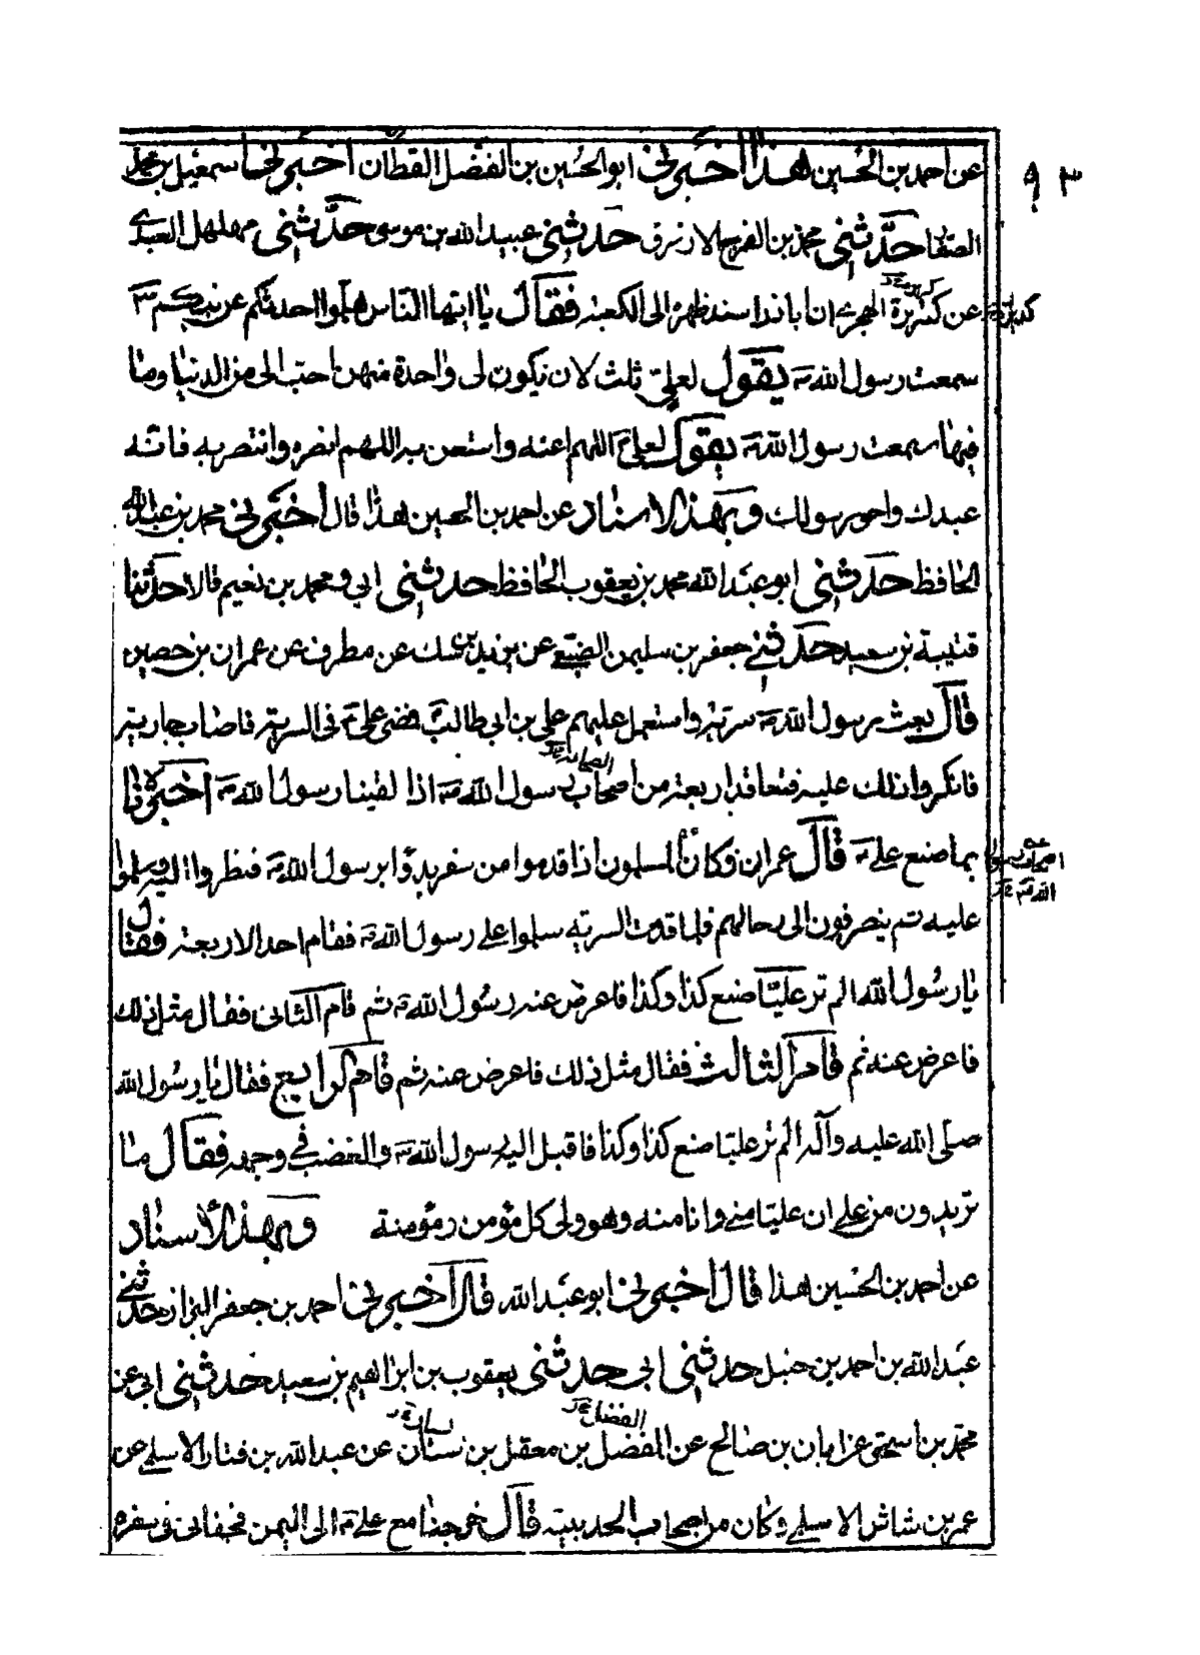 ٩٣
عن احمد بن الحسين هذا اخبرني ابو الحسين بن الفضل القطان اخبرنا اسمعيل بن محمد
الصفا حدثني محمد بن الفرج الازرق حدثني عبيد الله بن موسى حدثني مهلهل العبدي
عن كديرة الهجري ان اباذر اسند ظهره الى الكعبة فقال يا ايها الناس هلموا احدثكم عن نبيكم
سمعت رسول الله يقول لعلي ثلث لان يكون لي واحدة منهن احب الي من الدنيا وما
فيها سمعت رسول الله يقول لعلي اللهم اعنه واستعن به اللهم انصره وانتصر به فانه
عبدك واخو رسولك وبهذا الاسناد عن احمد بن الحسين هذا قال اخبرني محمد بن عبدالله
الحافظ حدثني ابو عبد الله محمد بن يعقوب الحافظ حدثني ابي ومحمد بن نعيم قالا حدثنا
قتيبة بن سعيد حدثني جعفر بن سليمن الضبعي عن يزيد عن مطرف عن عمران بن حصين
قال بعث رسول الله سرية واستعمل عليهم علي بن ابي طالب فمضى علي في السرية فاصاب جارية
فانكروا ذلك عليه فتعاقد اربعة من اصحاب رسول الله اذا لقينا رسول الله اخبرناه
بما صنع علي قال عمران وكان المسلمون اذا قدموا من سفر بدؤا برسول الله فنظروا اليه وسلموا
عليه ثم ينصرفون الى رحالهم فلما قدمت السرية سلموا على رسول الله فقام احد الاربعة فقال
يا رسول الله الم تر عليا صنع كذا وكذا فاعرض عنه رسول الله ثم قام الثاني فقال مثل ذلك
فاعرض عنه ثم قام الثالث فقال مثل ذلك فاعرض عنه ثم قام الرابع فقال يا رسول الله
صلى الله عليه وآله الم تر عليا صنع كذا وكذا فاقبل اليه رسول الله والغضب في وجهه فقال ما
تريدون من علي ان عليا مني وانا منه وهو ولي كل مؤمن ومؤمنة وبهذا الاسناد
عن احمد بن الحسين هذا قال اخبرني ابو عبد الله قال اخبرني احمد بن جعفر البزاز حدثني
عبد الله بن احمد بن حنبل حدثني ابي حدثني يعقوب بن ابراهيم بن سعيد حدثني ابي عن
محمد بن اسحق عن ابان بن صالح عن الفضل بن معقل بن سنان عن عبد الله بن الاسلمي عن
عمر بن شاش الاسلمي وكان من اصحاب الحديبية قال خرجنا مع علي الى اليمن فجفاني في سفره